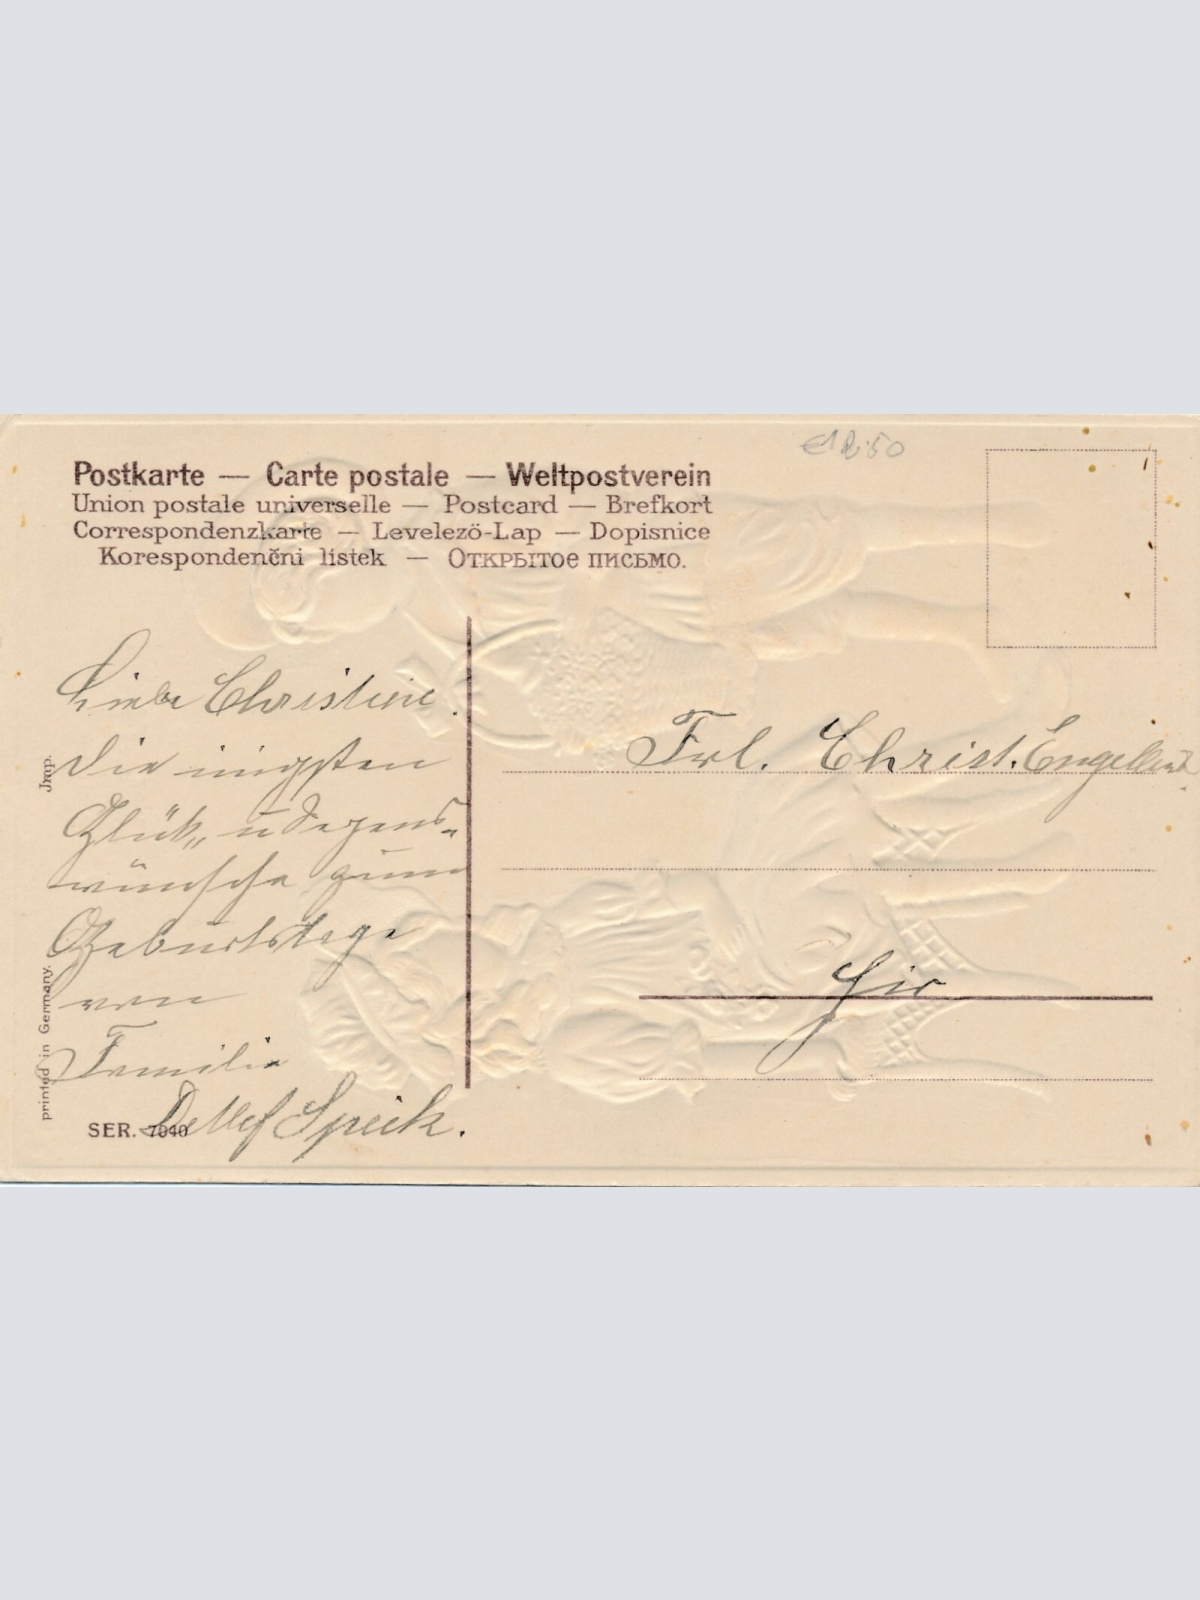 Postkarte — Carte postale — Weltpostverein
Union postale universelle — Postcard — Brefkort
Correspondenzkarte — Levelezö-Lap — Dopisnice
Korespondenčni listek — Открытое письмо.
€12.50
Liebe Christine.
Die innigsten
Glück„ u Segens„
wünsche zum
Geburtstage
von
Familie
Detlef Speik.
Frl. Christ.
Hir
printed in Germany.
SER. 7040